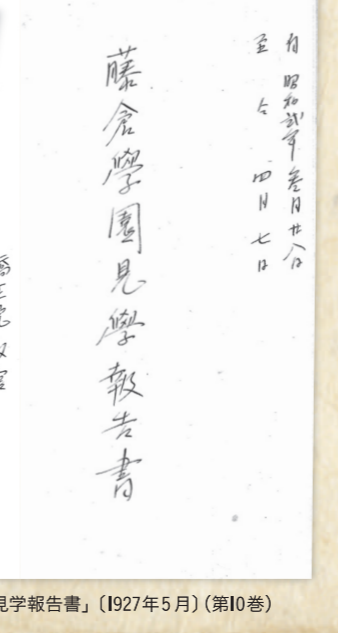 自 昭和弐年 参月廿八日
至 仝 四月七日
藤倉學園見學報告書
見学報告書」〔1927年5月〕（第10巻）